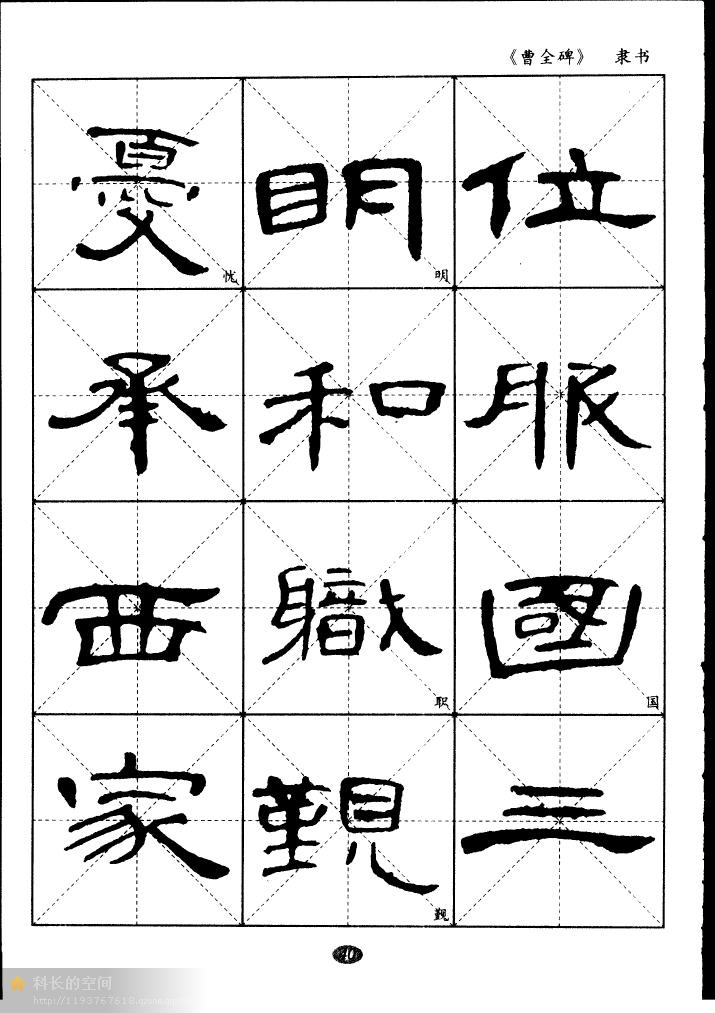 《曹全碑》 隶书
位服國国三
明明和職职覲觐
憂忧承西家
科长的空间